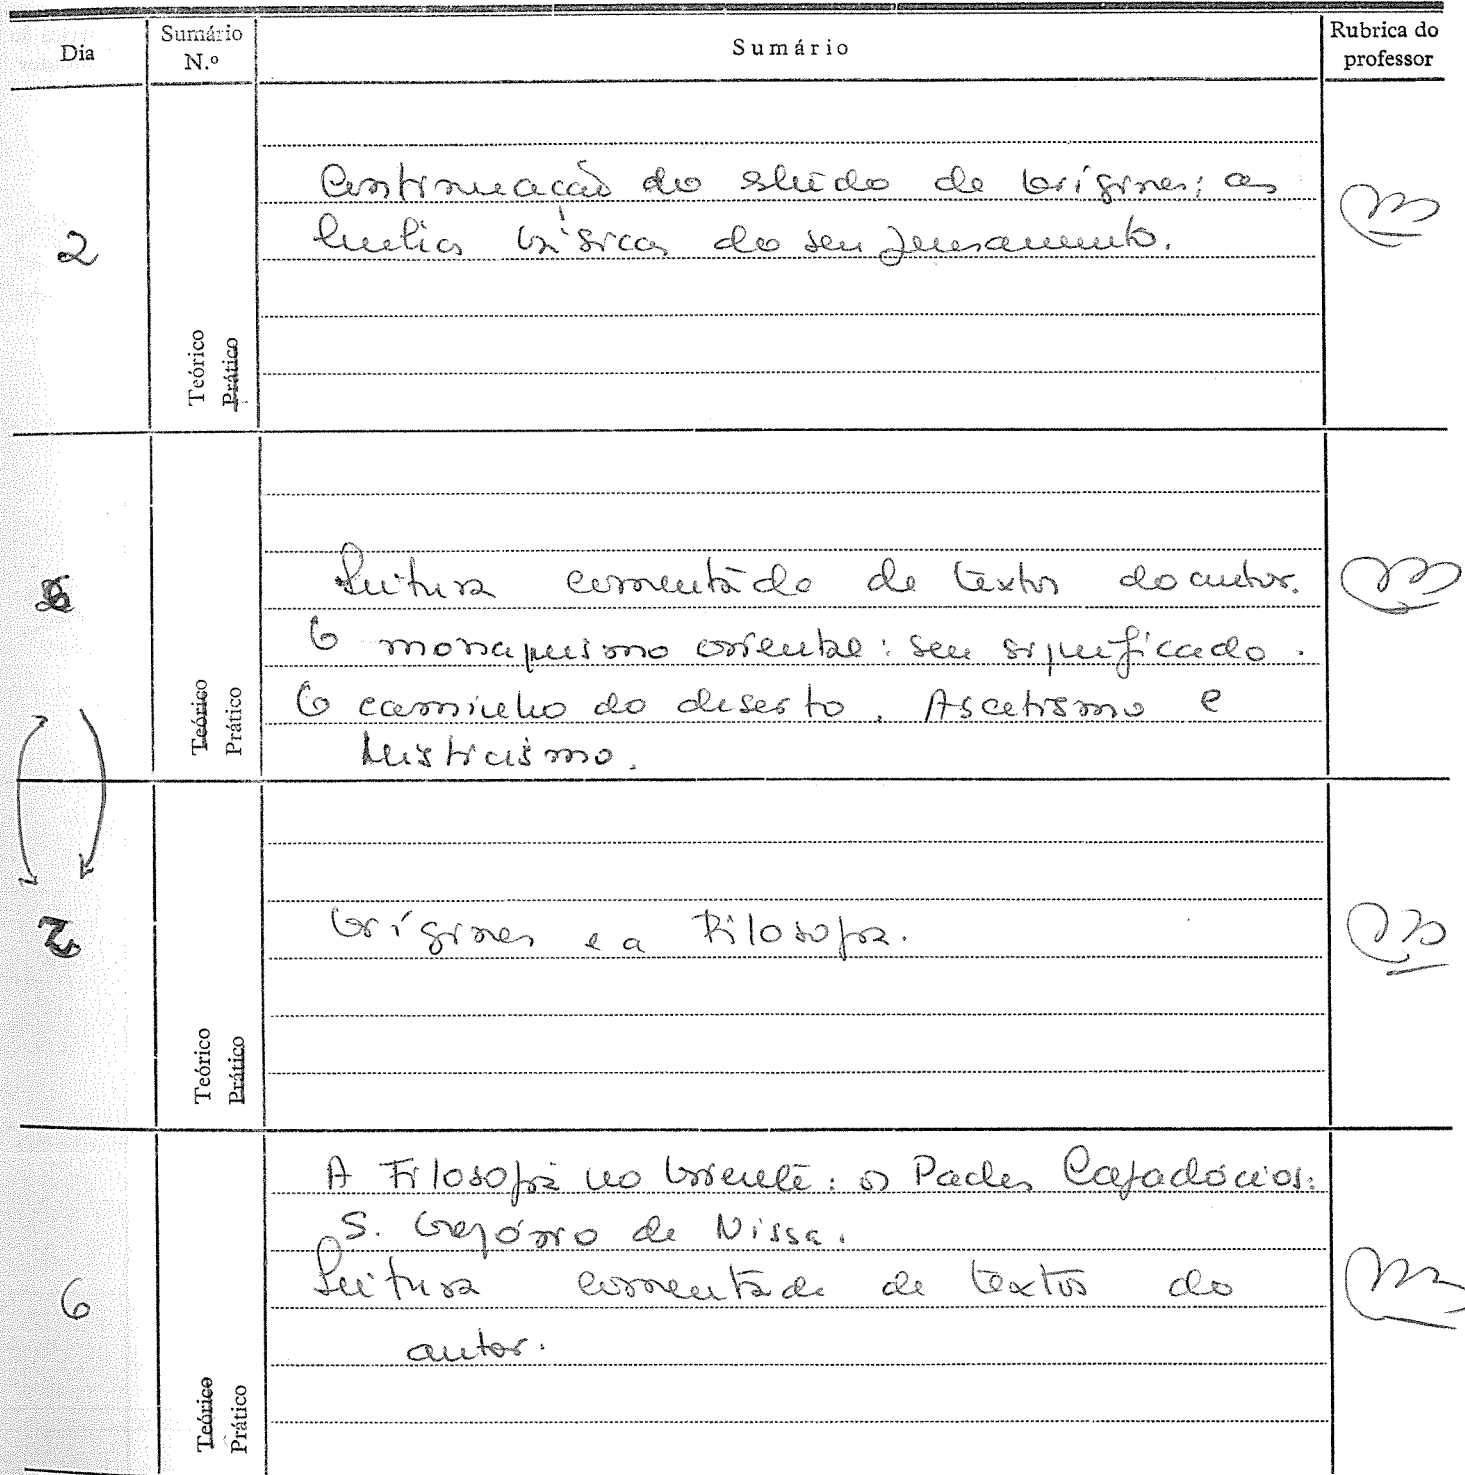 Dia
Sumário
N.º
Sumário
Rubrica do
professor
2
Continuação do estudo de Orígenes; as
linhas básicas do seu pensamento.
Teórico
Prático
Leitura comentada de textos do autor.
O monaquismo oriental: seu significado.
O caminho do deserto. Ascetismo e
Misticismo.
Teórico
Prático
2
Orígenes e a Filosofia.
Teórico
Prático
6
A Filosofia no Oriente: os Padres Capadócios:
S. Gregório de Nissa.
Leitura comentada de textos do
autor.
Teórico
Prático